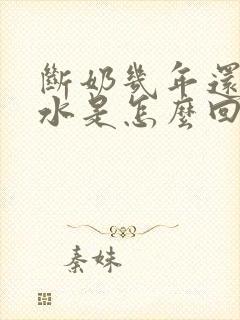 斷奶幾年還
水是怎麼回
秦妹